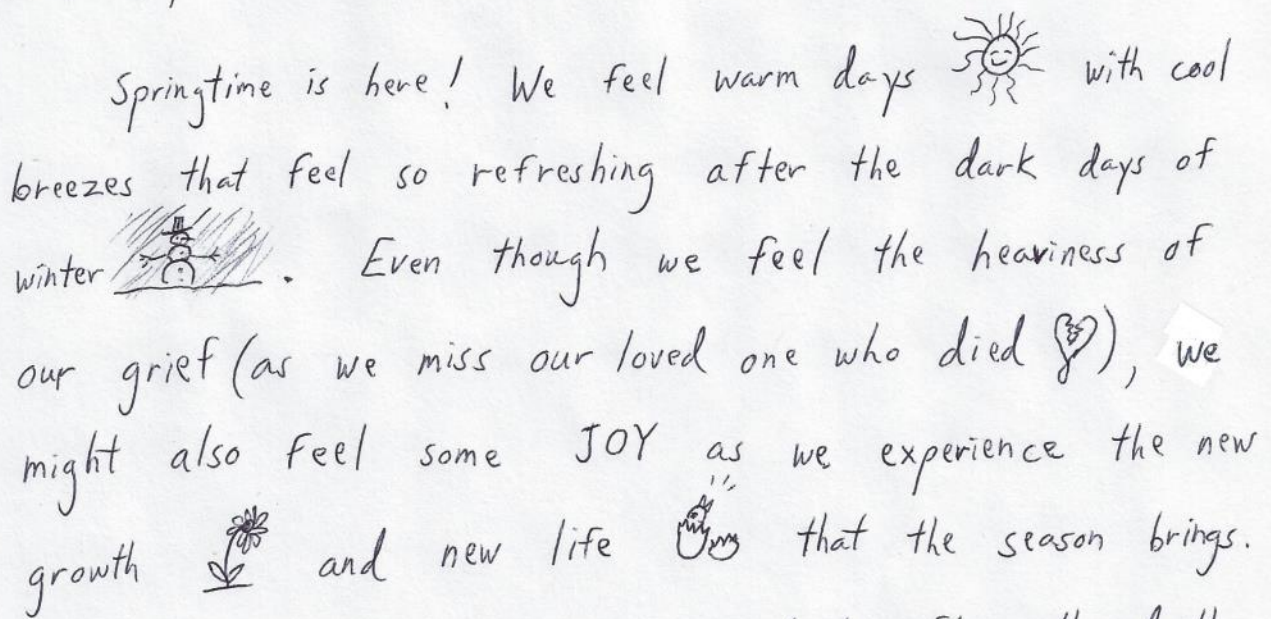 Springtime is here! We feel warm days with cool
breezes that feel so refreshing after the dark days of
winter. Even though we feel the heaviness of
our grief (as we miss our loved one who died), we
might also feel some JOY as we experience the new
growth and new life that the season brings.